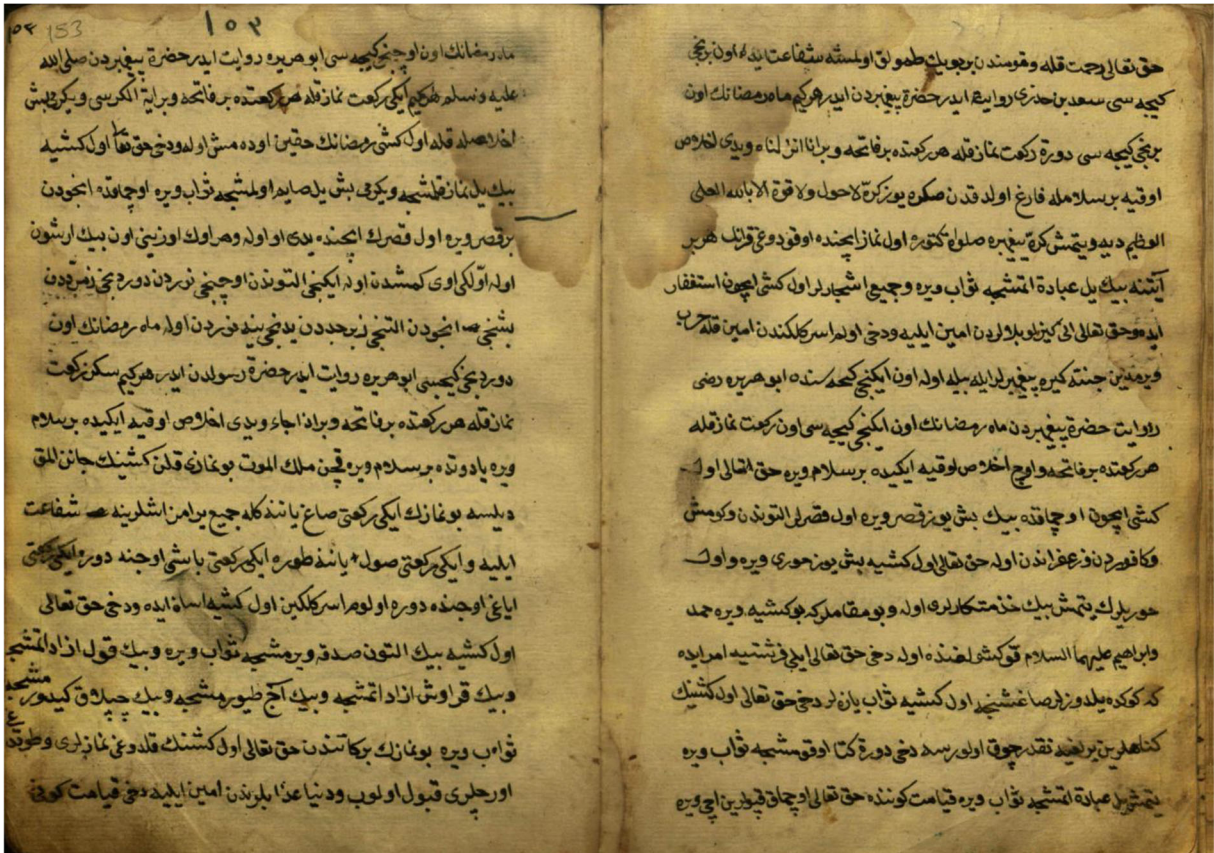 حق تعالى رحمت قله و قومندن بر بويك طمولق اولمشه شفاعت ايده اون برنجى
كيجه سى سعد بن روايت ايدر حضرة پيغمبردن ايدر هر كيم ماه رمضانك اون
برنجى كيجه سى دورة ركعت نماز قله هر ركعتده بر فاتحه و بر انا انزلناه ويدى اخلاص
اوقيه بر سلامله فارغ اولدقدن صكره يوز كرة لاحول ولا قوة الا بالله العلى
العظيم ديه ويتمش كرة پيغمبره صلواة كتوره اول نماز ايچنده اوقودوغى قرانك هر بر
آيتنه بيك يل عبادة اتمشجه ثواب ويره وجميع اشجارلر اول كشى ايچون استغفار
ايده وحق تعالى انى كيزلو بلالردن امين ايليه ودخى اولوم اسركلكندن امين قله حرب
ويرمدين جنته كيره پيغمبرلر ايله بيله اوله اون ايكنجى كيجه سنده ابو هريره رضى
روايت حضرة پيغمبردن ماه رمضانك اون ايكنجى كيجه سى اون ركعت نماز قله
هر ركعتده بر فاتحه واوچ اخلاص اوقيه ايكيده بر سلام ويره حق تعالى اول
كشى ايچون اوچماقده بيك بش يوز قصر ويره اول قصرلر التوندن وكومش
وكافوردن وزعفراندن اوله حق تعالى اول كشيه بش يوز حورى ويره واول
حوريلرك يتمش بيك خذمتكارلرى اوله وبو مقاملر كه بو كشيه ويره حمد
وابراهيم عليهما السلام قوكشى لغنده اوله دخى حق تعالى ايلى فرشتيه امر ايده
كه كوكده يلدوزلر صاغشنجه اول كشيه ثواب يازلر دخى حق تعالى اول كشينك
كناهلرين نقدر چوق اولورسه دخى دورة كتا اوقومشجه ثواب ويره
يتمش يل عبادة اتمشجه ثواب ويره قيامت كوننده حق تعالى اوچماق قپولرين اچى ويره
١٥٣
153
ماه رمضانك اون اوچنجى كيجه سى ابو هريره روايت ايدر حضرة پيغمبردن صلى الله
عليه وسلم هر كيم ايكى ركعت نماز قله هر ركعتده بر فاتحه وبر اية الكرسى ويكرمى بش
اخلاصله قله اول كشى رمضانك حقين اوده مش اوله ودخى حق تعا اول كشيه
بيك يل نماز قلمشجه ويكرمى بش يل صايم اولمشجه ثواب ويره اوچماقده انجودن
بر قصر ويره اول قصرك ايچنده يدى او اوله وهر اوك اوزينى اون بيك ارشون
اوله اولكى اوى كمشدن اوله ايكنجى التوندن اوچنجى نوردن دوردنجى زمرددن
بشنجى انجودن التنجى زبرجددن يدنجى ينه نوردن اوله ماه رمضانك اون
دوردنجى كيجسى ابو هريره روايت ايدر حضرة رسولدن ايدر هر كيم سكز ركعت
نماز قله هر ركعتده بر فاتحه وبر اذا جاء ويدى اخلاص اوقيه ايكيده بر سلام
ويره يا دوتده بر سلام ويره قچن ملك الموت بو نمازى قلن كشينك جانن المق
ديلسه بو نمازك ايكى ركعتى صاغ يانه كله جميع يرامز اشلرينه شفاعت
ايليه وايكى ركعتى صول يانه طوره ايكى ركعتى باشى اوجنه دوره ايكى ركعتى
اياغى اوجنده دوره اولوم اسركلكين اول كشيه اسان ايده ودخى حق تعالى
اول كشيه بيك التون صدقه ويرمشجه ثواب ويره وبيك قول ازاد اتمشجه
وبيك قراوش ازاد اتمشجه وبيك آج طيورمشجه وبيك چپلاق كيدورمشجه
ثواب ويره بو نمازك بركاتندن حق تعالى اول كشينك قلدوغى نمازلرى وطوتدوغى
اورجلرى قبول اولوب ودنيا عذابلرندن امين ايليه دخى قيامت كونى